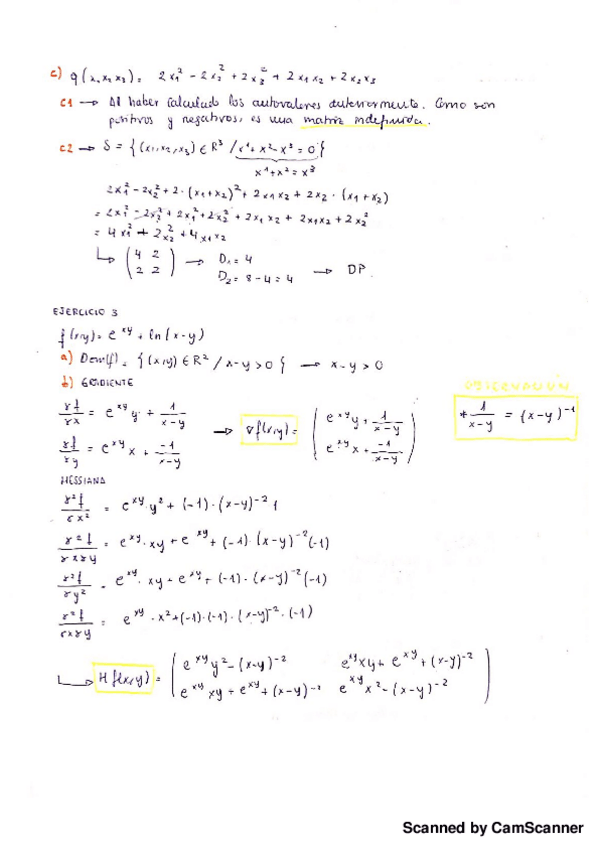 c) q(x₁x₂x₃) = 2x₁² - 2x₂² + 2x₃² + 2x₁x₂ + 2x₂x₃
c1 → Al haber calculado los autovalores anteriormente. Como son
positivos y negativos, es una matriz indefinida.
c2 → S = {(x₁,x₂,x₃) ∈ R³ / x¹+x²-x³=0}
x¹+x²=x³
2x₁² - 2x₂² + 2·(x₁+x₂)² + 2x₁x₂ + 2x₂·(x₁+x₂)
= 2x₁² - 2x₂² + 2x₁² + 2x₂² + 2x₁x₂ + 2x₁x₂ + 2x₂²
= 4x₁² + 2x₂² + 4x₁x₂
(4 2
2 2) → D₁ = 4
D₂ = 8-4 = 4 → DP
EJERCICIO 3
f(x,y) = e^xy + ln(x-y)
a) Dom(f) = {(x,y) ∈ R² / x-y>0} → x-y>0
b) GRADIENTE
OBSERVACIÓN
γf/γx = e^xy y + 1/(x-y)
γf/γy = e^xy x + -1/(x-y)
→ ∇f(x,y) = (e^xy y + 1/(x-y)
e^xy x + -1/(x-y))
* 1/(x-y) = (x-y)⁻¹
HESSIANA
γ²f/γx² = e^xy·y² + (-1)·(x-y)⁻² 1
γ²f/γxγy = e^xy·xy + e^xy + (-1)·(x-y)⁻²(-1)
γ²f/γy² = e^xy·xy + e^xy + (-1)·(x-y)⁻²(-1)
γ²f/γxγy = e^xy·x² + (-1)·(-1)·(x-y)⁻²·(-1)
→ Hf(x,y) = (e^xy y² - (x-y)⁻² e^xy xy + e^xy + (x-y)⁻²
e^xy xy + e^xy + (x-y)⁻² e^xy x² - (x-y)⁻²)
Scanned by CamScanner